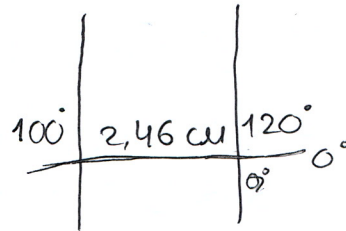 100° 2,46 см 120°
0°
0°